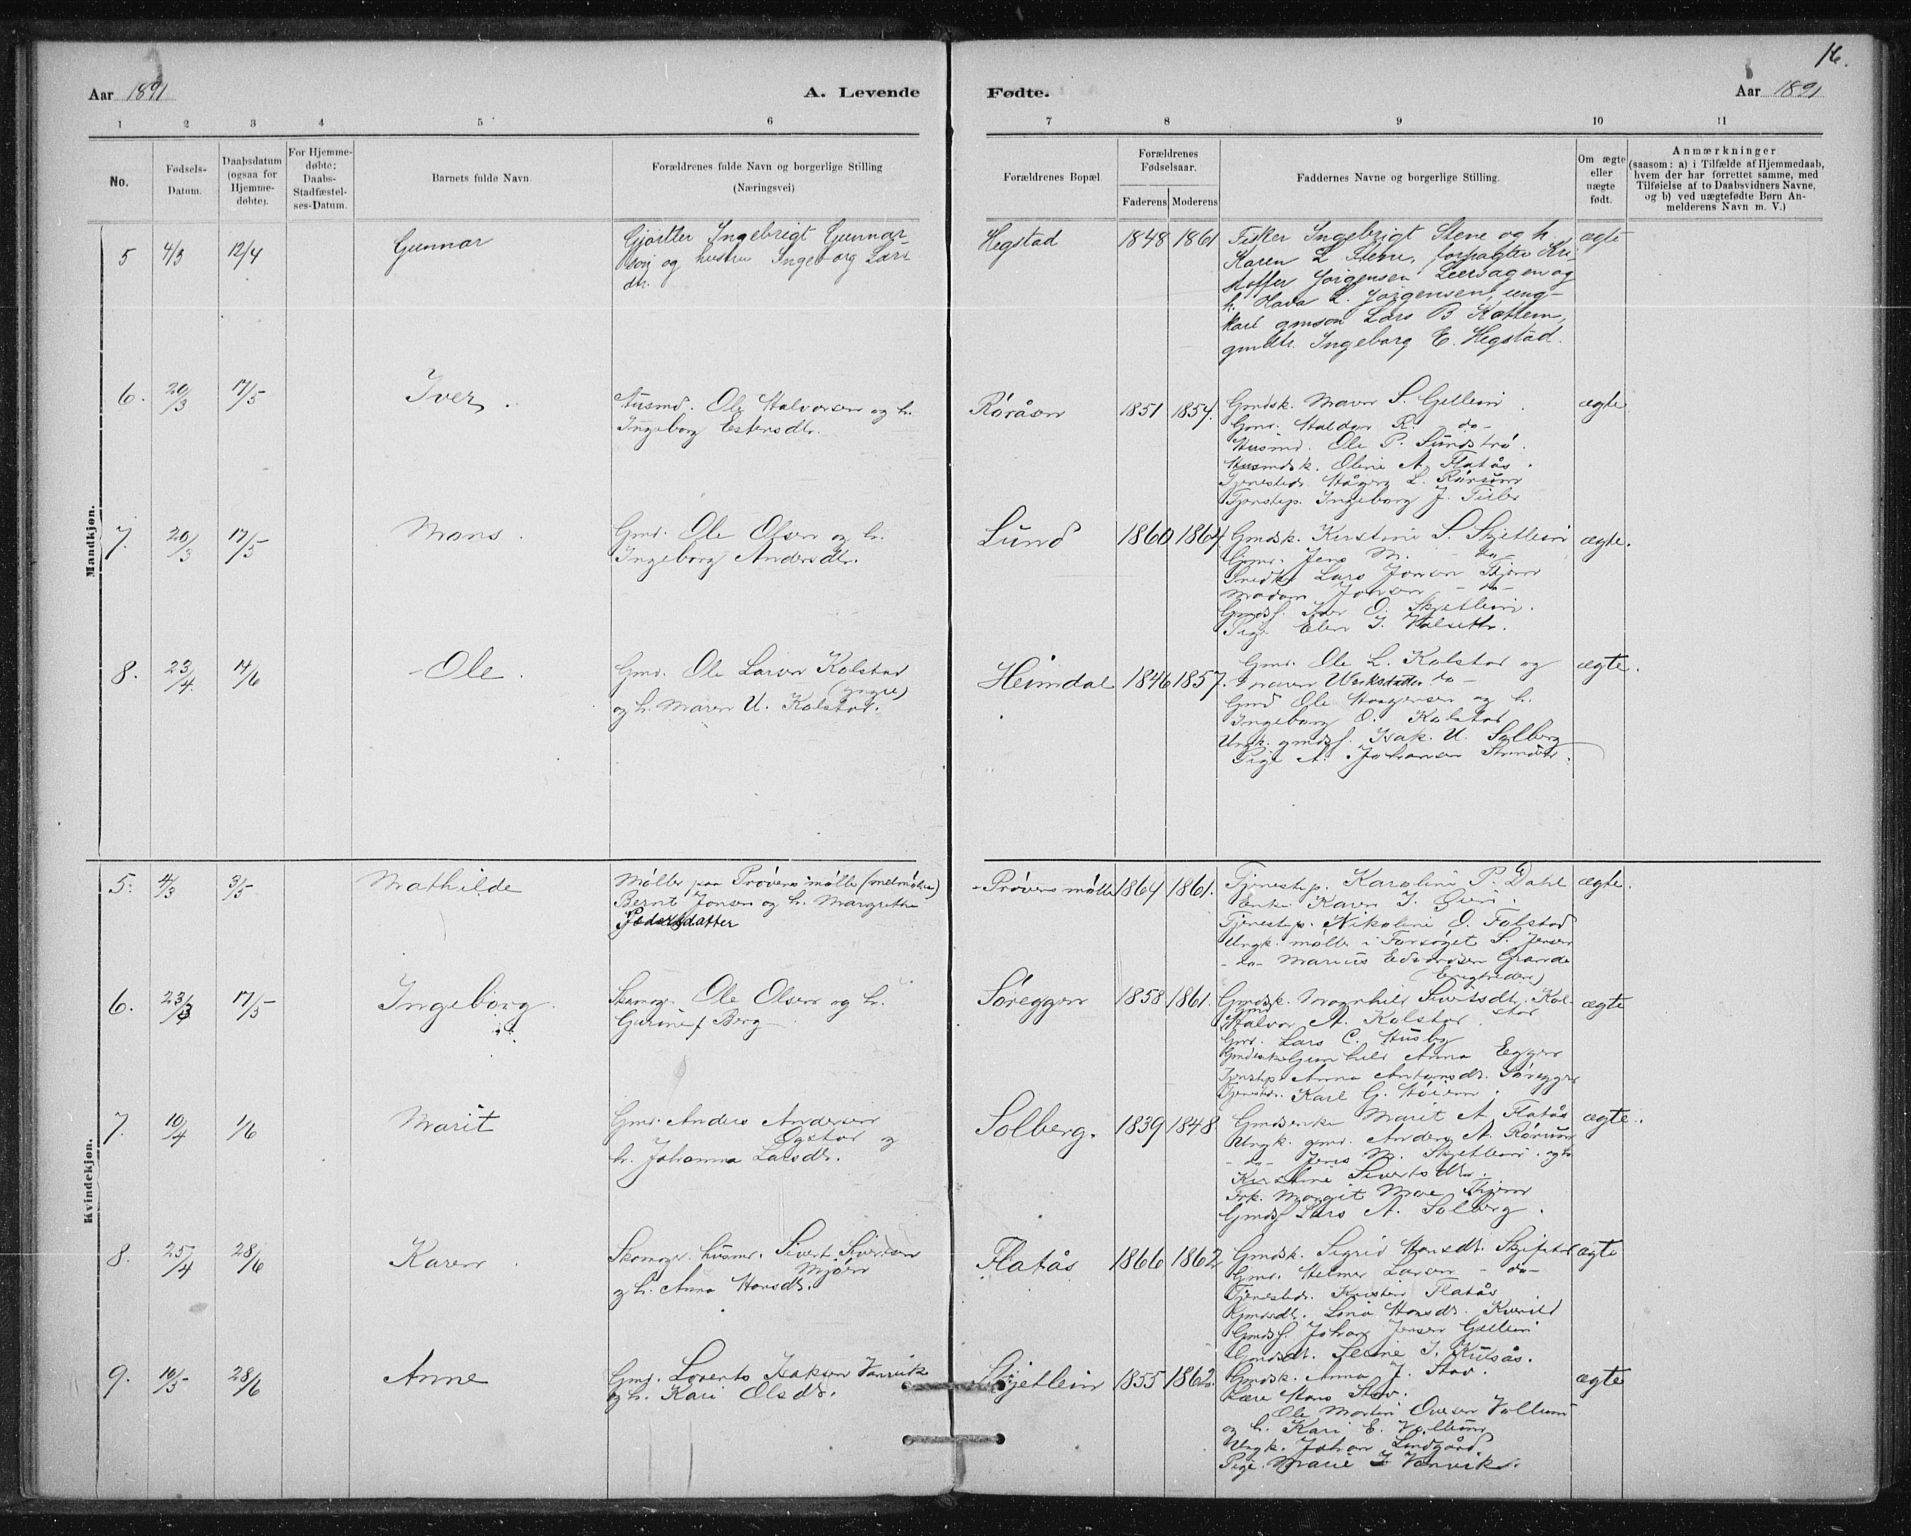 16.
Aar 1891
A. Levende
Fødte.
Aar 1891
1 2 3 4 5 6 7 8 9 10 11
No.
Fødsels-
Datum.
Daabsdatum
(ogsaa for
Hjemme-
døbte).
For Hjemme-
døbte:
Daabs-
Stadfæstel-
ses-Datum.
Barnets fulde Navn.
Forældrenes fulde Navn og borgerlige Stilling
(Næringsvei)
Forældrenes Bopæl.
Forældrenes
Fødselsaar.
Faderens Moderens
Faddernes Navne og borgerlige Stilling.
Om ægte
eller
uægte
født.
Anmærkninger
(saasom: a) i Tilfælde af Hjemmedaab,
hvem der har forrettet samme, med
Tilføielse af to Daabsvidners Navne,
og b) ved uægtefødte Børn An-
melderens Navn m. V.)
Mandkjøn.
5 4/3 12/4 Gunnar
Gjørtler Ingebrigt Gunnar-
søn og hustru Ingeborg Lars-
dtr.
Hegstad 1848 1861
Fisker Ingebrigt Stene og h.
Karen L. Stene, forpagter Kri-
stoffer Jørgensen Leersagen og
h. L. Jørgensen, ung-
karl gmsøn Lars B Kattem,
gmdtr. Ingeborg E. Hegstad.
ægte
6. 20/3 17/5 Iver.
Husmd. Ole Halvorsen og h.
Ingeborg Estensdtr.
Røråsen 1851 1854.
Gmdsk. S. Gjellein
Gmr. Haldor R. do-
Husmd. Ole P. Sundstrø
Husmdsk. Oline A. Flatås.
Tjenestedr. L. Rørsum
Tjenstep. Ingeborg J. Tiller
ægte
7. 20/3 17/5 Mons.
Gmr. Ole Olsen og h.
Ingeborg Andersdtr.
Lund 1860 1864
Gmdsk. Kirstine S. Skjetlein
Gmr. Jens M. do-
Lars Jonsen
Madam Jonsen -do-
Gmdsf. Iver O. Skjetlein.
Pige Elen I.
ægte.
8. 23/4 14/6 Ole.
Gmr. Ole Larsen Kolstad
(yngre)
og h. Maren U. Kolstad.
Heimdal 1846 1857.
Gmr. Ole L. Kolstad og
do-
Gmd Ole og h.
Ingeborg O. Kolstad
Ungk. gmdsf. Isak U. Solberg
Pige A. Johansen
ægte.
Kvindekjøn.
5. 4/3 3/5 Mathilde
Møller paa Prøvens mølle (melmølle)
Bernt Jonsen og h. Margrethe
Pedersdatter
Prøvens mølle 1864 1861.
Tjenestep. Karoline P. Dahl
Enke Karen J. Øien.
Tjenestep. Nikoline O. Folstad
Ungk. mølle i Forsøget S. Jensen
-do- Marius Edvardsen Grande
(Enigheden)
ægte.
6. 23/3 17/5 Ingeborg.
Skomgr. Ole Olsen og h.
Gurine f Berg
Søreggen 1858 1861.
Gmdsk. Magnhild Sivertsdtr. Kol-
stad
Gmd
Halvor A. Kolstad.
Gmr. Lars C. Husby
Gunhild Anna Eggen
Tjenstep Anna Antonsdtr. Søreggen
Tjenstedr. Karl G. Høiem.
ægte
7. 10/4 1/6 Marit
Gmr. Anders Andersen
Øgstad og
h. Johanna Larsdtr.
Solberg. 1839 1848
Gmdsenke Marit A. Flatås
Ungk. gmr. Anders A. Rørum
-do- Jens M. Skjetlein. og h.
Kirstine Sivertsdtr.
Frk. Margit Moe
Gmdsf Lars A. Solberg.
ægte.
8. 25/4 28/6 Karen
Skomgr. husmr. Sivert Sivertsen
Mjøen
og h. Anna Hansdtr.
Flatås 1866 1862
Gmdsk. Sigrid Hansdtr.
Gmr. Helmer Larsen -do-
Tjenestedr. Kristen Flatås
Gmdsdtr. Lina Hansdtr. Kvenild
Gmdsf. Johan Jensen Gjellein
Gmdsdt. Serine I. Kulsås.
ægte
9. 10/5 28/6 Anne
Gmd. Lorents Isaksen Vanvik
og h. Kari Olsdtr.
Skjetlein 1855 1862.
Gmdsk. Anna J. Stav.
Hans Stav.
Ole Martin Ovesen Vollum
og h. Kari E. Vollum
Ungk. Johan Lindgård
Pige Marie I Vanvik.
ægte